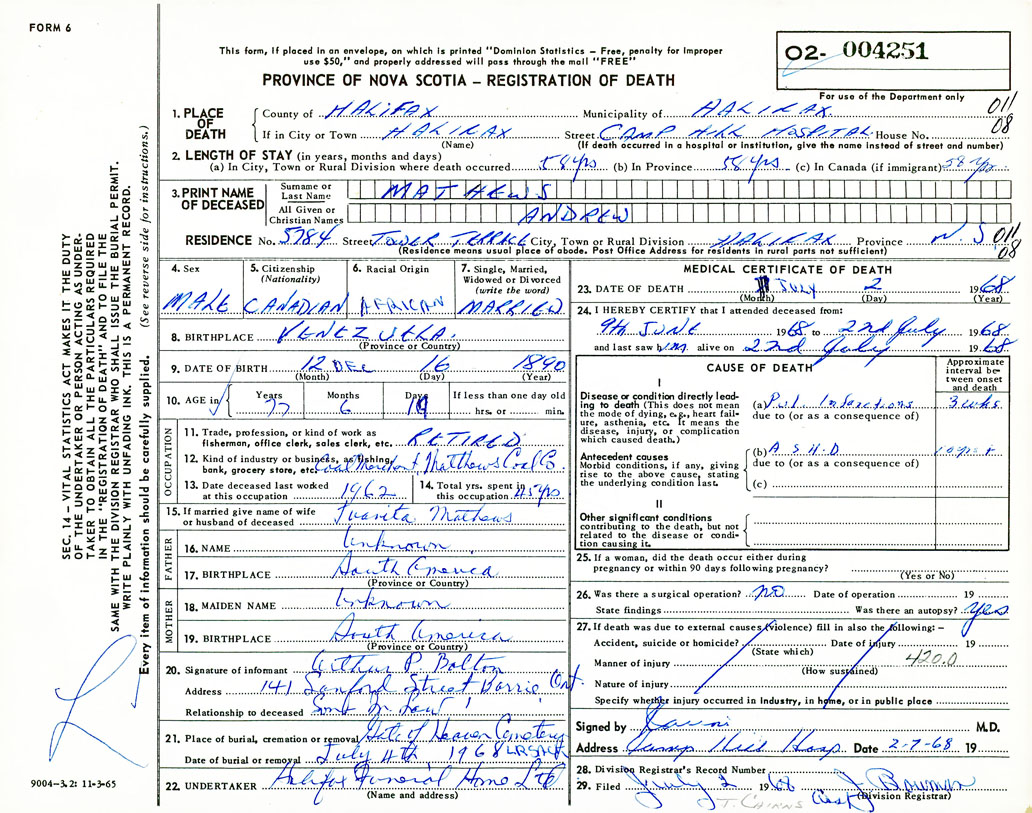 FORM 6
This form, if placed in an envelope, on which is printed "Dominion Statistics – Free, penalty for improper
use $50," and properly addressed will pass through the mail "FREE"
O2- 004251
PROVINCE OF NOVA SCOTIA – REGISTRATION OF DEATH
For use of the Department only
011
08
1. PLACE OF DEATH County of HALIFAX Municipality of HALIFAX
If in City or Town HALIFAX Street CAMP HILL HOSPITAL House No.
(Name) (If death occurred in a hospital or institution, give the name instead of street and number)
2. LENGTH OF STAY (in years, months and days)
(a) In City, Town or Rural Division where death occurred 58 yrs (b) In Province 58 yrs (c) In Canada (if immigrant) 58 yrs.
3. PRINT NAME OF DECEASED
Surname or Last Name MATHEWS
All Given or Christian Names ANDREW
RESIDENCE No. 5784 Street TOWER TERRACE City, Town or Rural Division HALIFAX Province N.S 011
08
(Residence means usual place of abode. Post Office Address for residents in rural parts not sufficient)
4. Sex MALE
5. Citizenship (Nationality) CANADIAN
6. Racial Origin AFRICAN
7. Single, Married, Widowed or Divorced (write the word) MARRIED
8. BIRTHPLACE VENEZUELA.
(Province or Country)
9. DATE OF BIRTH 12 DEC 16 1890
(Month) (Day) (Year)
10. AGE in Years Months Days If less than one day old
77 6 hrs. or min.
OCCUPATION
11. Trade, profession, or kind of work as
fisherman, office clerk, sales clerk, etc. RETIRED
12. Kind of industry or business, as fishing,
bank, grocery store, etc. Coal Merchant Matthews Coal Co.
13. Date deceased last worked
at this occupation 1962
14. Total yrs. spent in
this occupation 45 yrs
15. If married give name of wife
or husband of deceased Juanita Mathews
FATHER
16. NAME Unknown
17. BIRTHPLACE South America
(Province or Country)
MOTHER
18. MAIDEN NAME Unknown
19. BIRTHPLACE South America
(Province or Country)
20. Signature of informant Arthur P. Bolton
Address 141 Sanford Street Barrie Ont.
Relationship to deceased Son In Law
21. Place of burial, cremation or removal Gate of Heaven Cemetery
Date of burial or removal July 4th 1968
22. UNDERTAKER Halifax Funeral Home Ltd
(Name and address)
MEDICAL CERTIFICATE OF DEATH
23. DATE OF DEATH July 2 1968
(Month) (Day) (Year)
24. I HEREBY CERTIFY that I attended deceased from:
9th June 1968 to 2nd July 1968
and last saw him alive on 2nd July 1968
CAUSE OF DEATH
Approximate interval between onset and death
I
Disease or condition directly leading to death (This does not mean the mode of dying, e.g., heart failure, asthenia, etc. It means the disease, injury, or complication which caused death.)
(a) Pul. Infarctions 3 wks
due to (or as a consequence of)
Antecedent causes
Morbid conditions, if any, giving rise to the above cause, stating the underlying condition last.
(b) A S H D
due to (or as a consequence of)
(c)
II
Other significant conditions
contributing to the death, but not related to the disease or condition causing it.
25. If a woman, did the death occur either during
pregnancy or within 90 days following pregnancy?
(Yes or No)
26. Was there a surgical operation? NO Date of operation 19
State findings Was there an autopsy? Yes
27. If death was due to external causes (violence) fill in also the following: –
Accident, suicide or homicide? Date of injury 19
(State which)
Manner of injury 420.0
(How sustained)
Nature of injury
Specify whether injury occurred in Industry, in home, or in public place
Signed by M.D.
Address Camp Hill Hosp Date 2-7-68 19
28. Division Registrar's Record Number
29. Filed July 2 1968 J Bowman
(Division Registrar)
J.T. CAIRNS
SEC. 14 – VITAL STATISTICS ACT MAKES IT THE DUTY
OF THE UNDERTAKER OR PERSON ACTING AS UNDER-
TAKER TO OBTAIN ALL THE PARTICULARS REQUIRED
IN THE "REGISTRATION OF DEATH" AND TO FILE THE
SAME WITH THE DIVISION REGISTRAR WHO SHALL ISSUE THE BURIAL PERMIT.
WRITE PLAINLY WITH UNFADING INK. THIS IS A PERMANENT RECORD.
Every item of information should be carefully supplied. (See reverse side for instructions.)
9004-3.2: 11-3-65